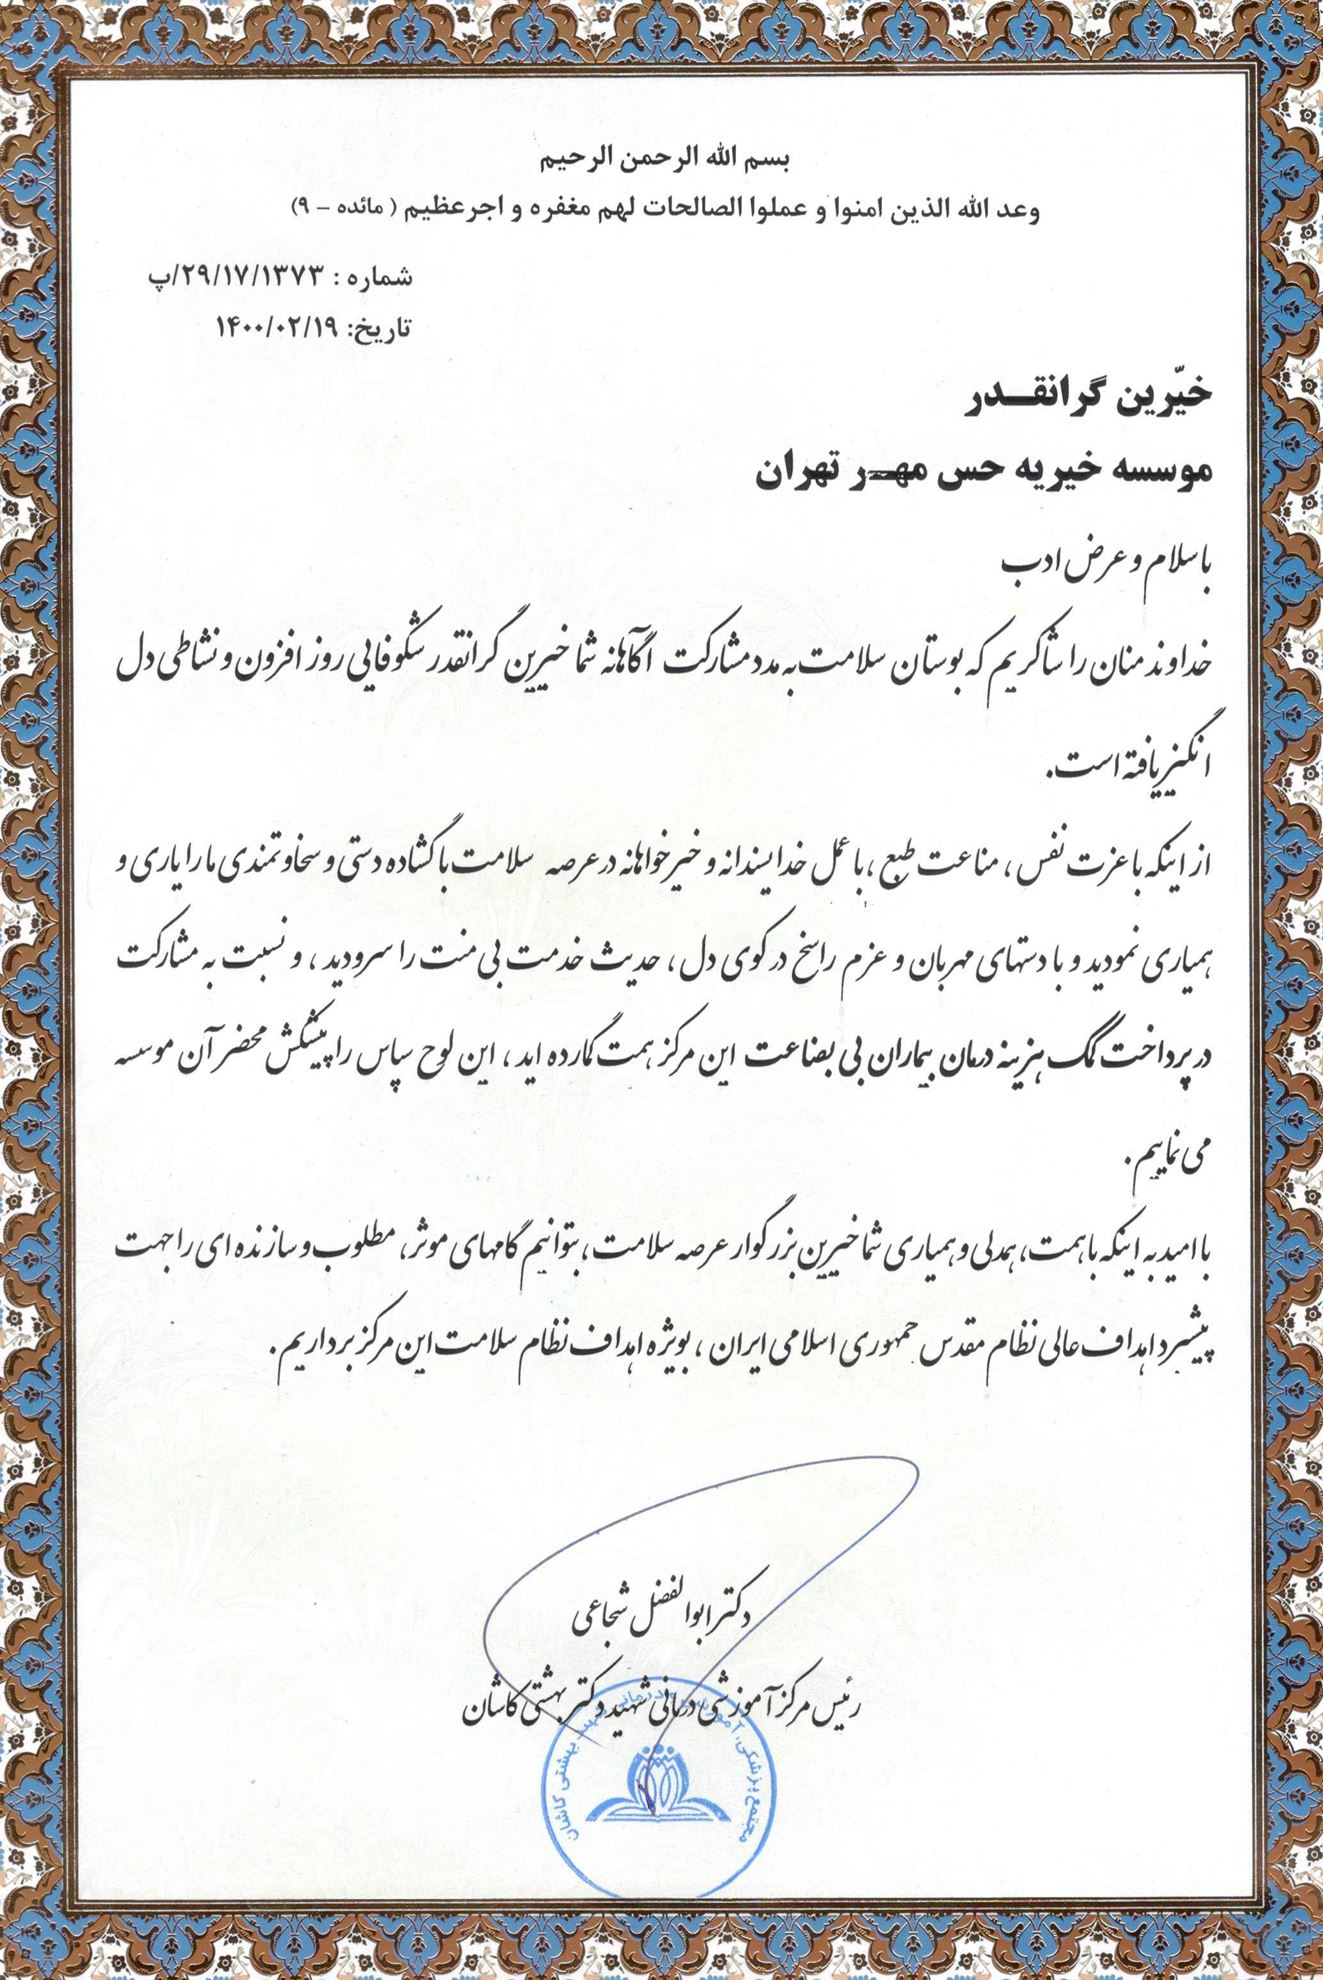 بسم الله الرحمن الرحیم
وعد الله الذین امنوا و عملوا الصالحات لهم مغفره و اجرعظیم ( مائده – ۹)
شماره : ۲۹/۱۷/۱۳۷۳/پ
تاریخ: ۱۴۰۰/۰۲/۱۹
خیّرین گرانقـــدر
موسسه خیریه حس مهـــر تهران
با سلام و عرض ادب
خداوند منان را شاکریم که بوستان سلامت به مدد مشارکت آگاهانه شما خیرین گرانقدر شکوفایی روز افزون و نشاطی دل
انگیز یافته است.
از اینکه با عزت نفس ، مناعت طبع ، با عمل خداپسندانه و خیرخواهانه در عرصه سلامت با گشاده دستی و سخاوتمندی ما را یاری و
همیاری نمودید و با دستهای مهربان و عزم راسخ در کوی دل ، حدیث خدمت بی منت را سرودید ، و نسبت به مشارکت
در پرداخت کمک هزینه درمان بیماران بی بضاعت این مرکز همت گمارده اید ، این لوح سپاس را پیشکش محضر آن موسسه
می نماییم .
با امید به اینکه با همت ، همدلی و همیاری شما خیرین بزرگوار عرصه سلامت ، بتوانیم گامهای موثر ، مطلوب و سازنده ای را جهت
پیشبرد اهداف عالی نظام مقدس جمهوری اسلامی ایران ، بویژه اهداف نظام سلامت این مرکز برداریم .
دکتر ابوالفضل شجاعی
رئیس مرکز آموزشی درمانی شهید دکتر بهشتی کاشان
مجتمع پزشکی، آموزشی و درمانی شهید بهشتی کاشان